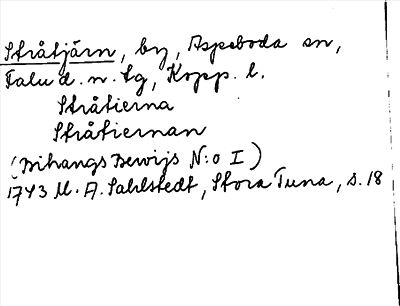 Stråtjärn, by, Aspeboda sn,
Falu d. n. tg, Kopp. l.
Stråtierna
Stråtiernan
(Bihangs Bewijs N:o I)
1743 M. A. Sahlstedt, Stora Tuna, s. 18